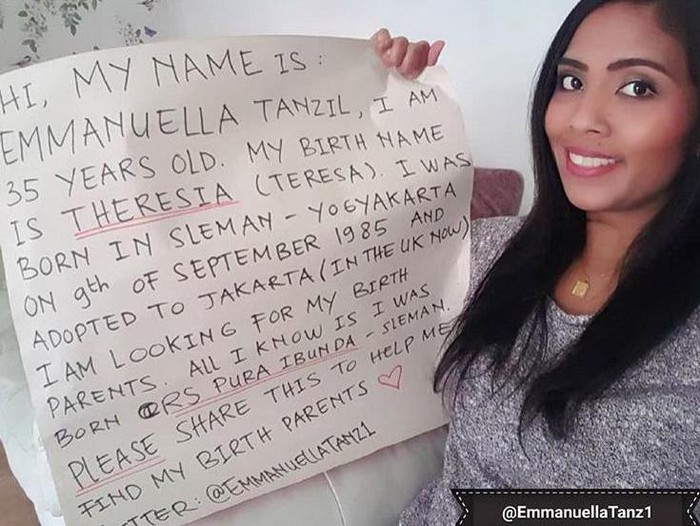 HI, MY NAME IS :
EMMANUELLA TANZIL, I AM
35 YEARS OLD. MY BIRTH NAME
IS THERESIA (TERESA). I WAS
BORN IN SLEMAN - YOGYAKARTA
ON 9th OF SEPTEMBER 1985 AND
ADOPTED TO JAKARTA (IN THE UK NOW)
I AM LOOKING FOR MY BIRTH
PARENTS. ALL I KNOW IS I WAS
BORN @RS PURA IBUNDA - SLEMAN.
PLEASE SHARE THIS TO HELP ME
FIND MY BIRTH PARENTS ♡
TWITTER: @EMMANUELLATANZ1
@EmmanuellaTanz1